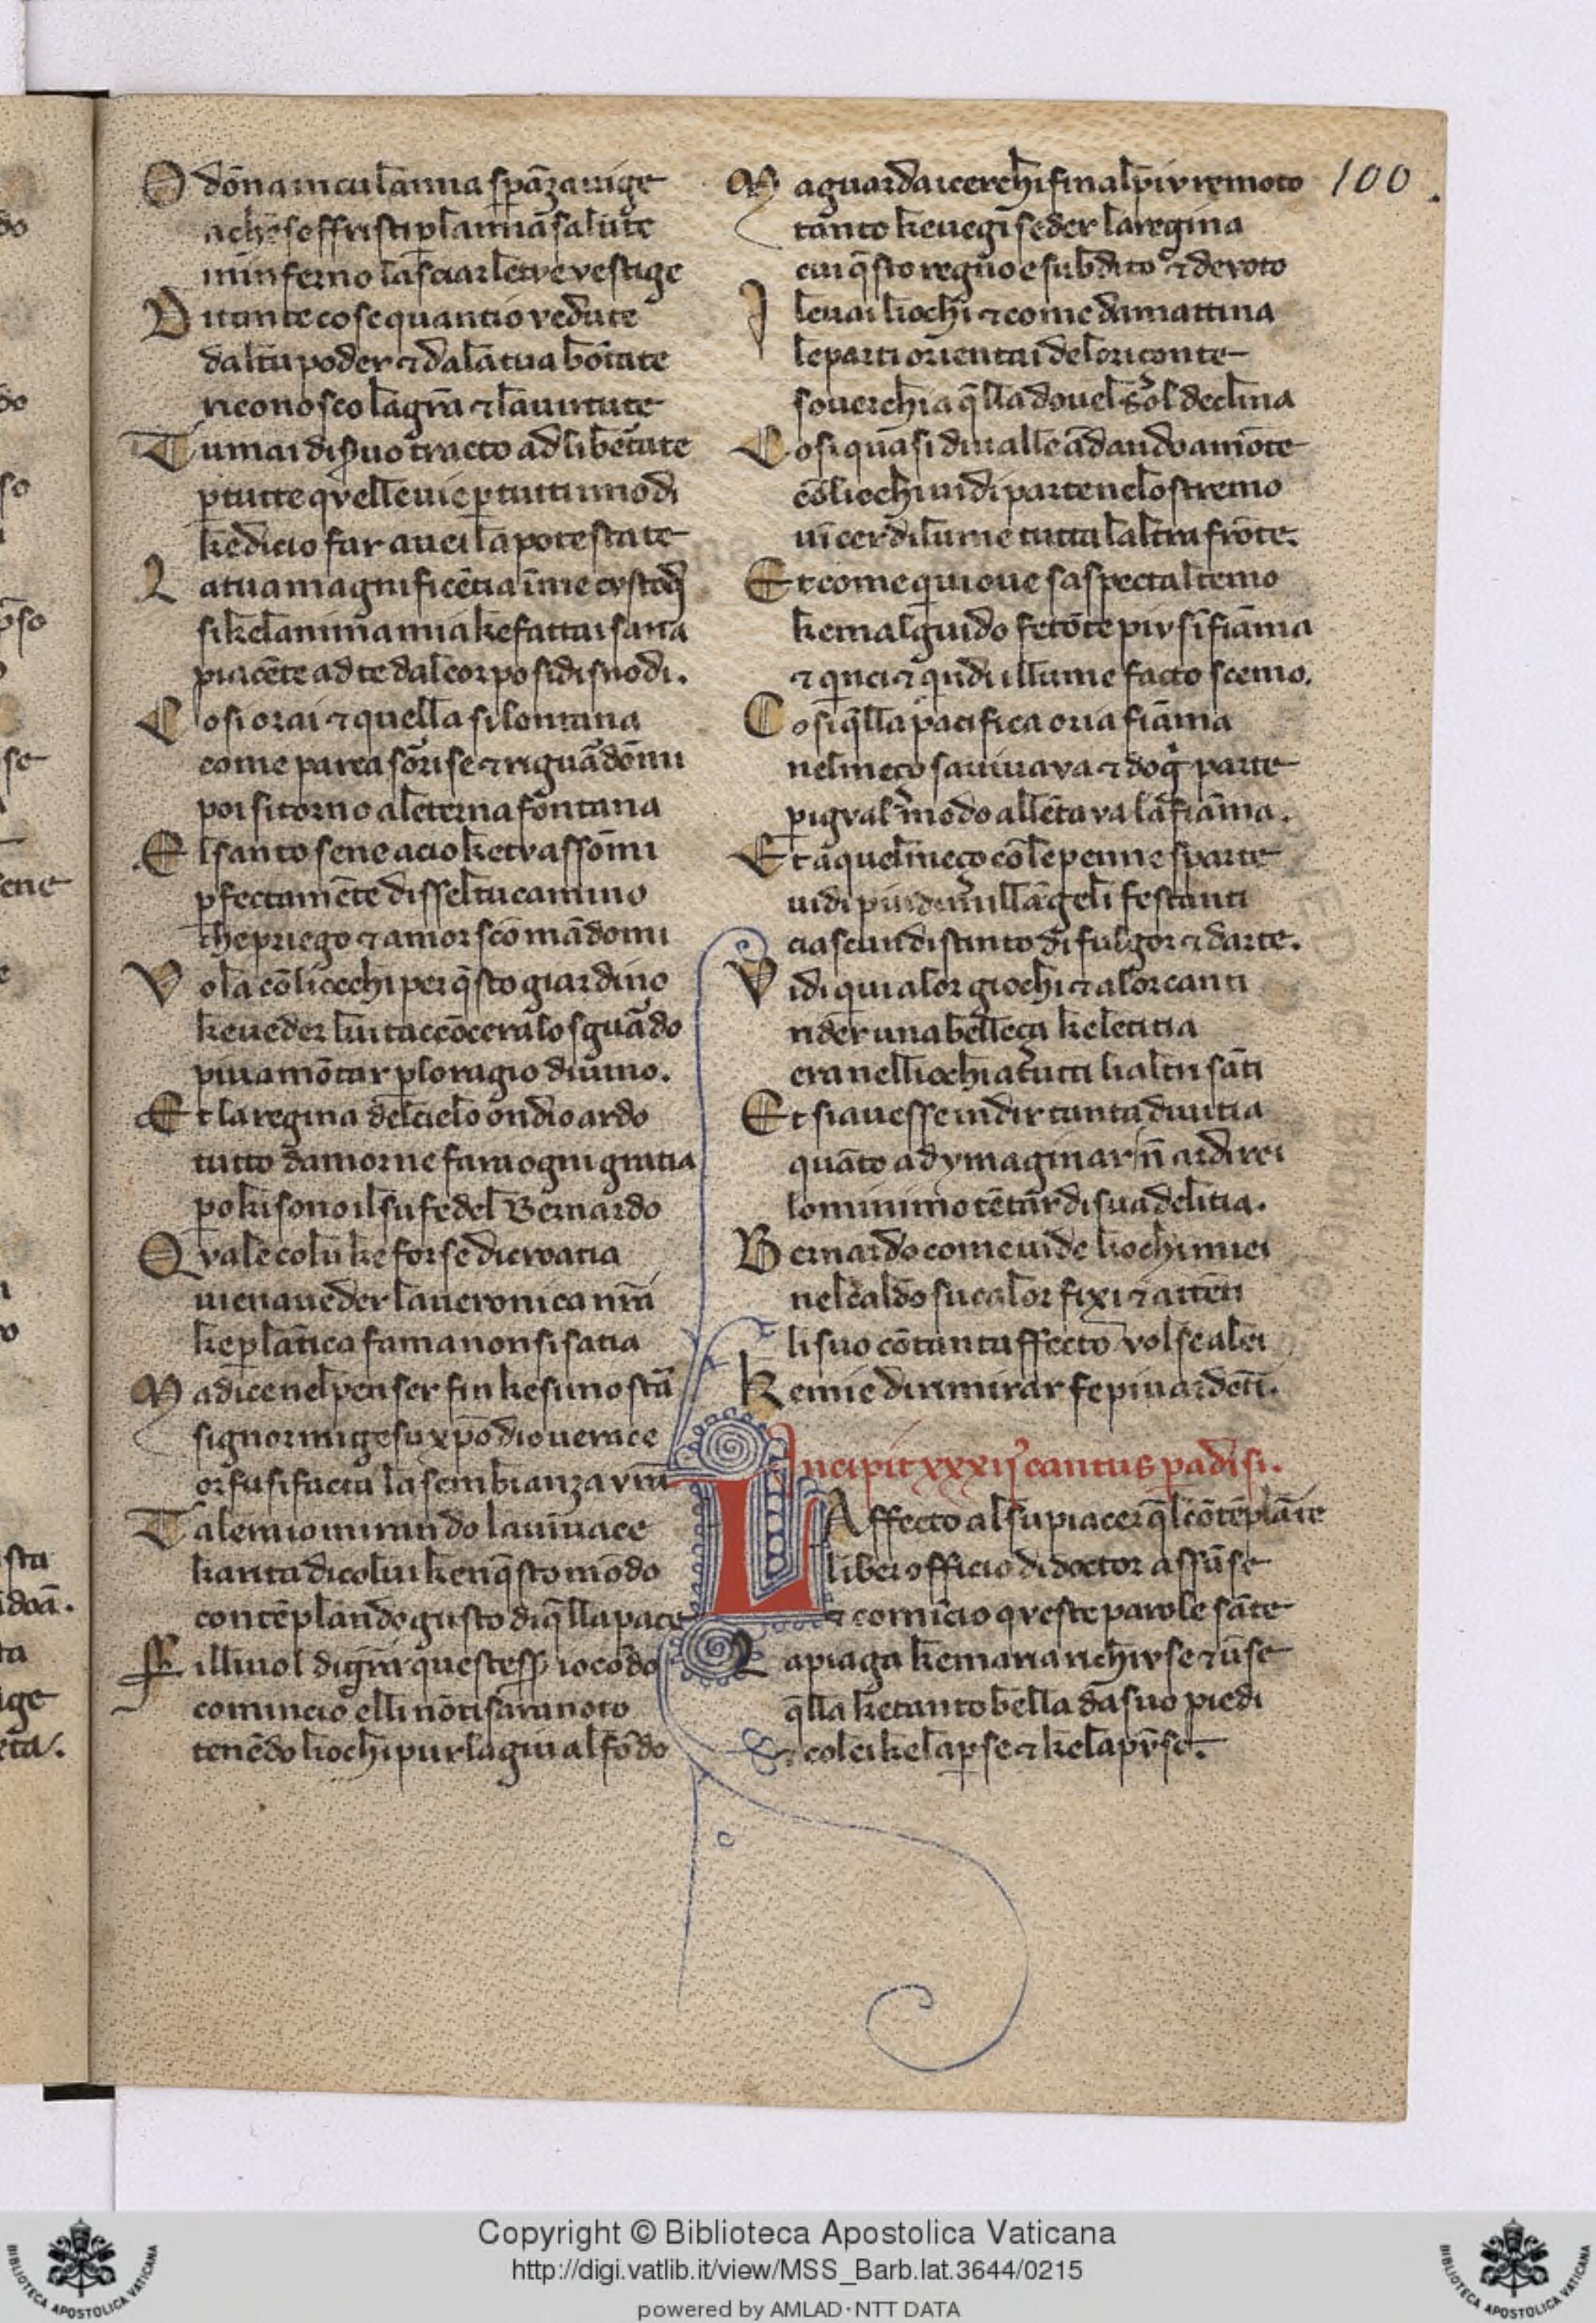 O dōna incul anma spāza uige
a chē soffristi p la mia salute
ininferno lasciar le tve vestige
D i tante cose quantio vedute
dal tu poder ⁊ da la tua bōtate
riconosco la gr̄a ⁊ la uirtute
T u mai di s̓uo tracto ad libertate
p tutte qvelle uie p tutti imodi
ke dicio far auei la potestate
L a tua magnificētia ī me cvstodi
si ke lanima mia ke fatta i sana
piacēte ad te dal corpo si disnodi.
C osi orai ⁊ quella si lontana
come parea sorrise ⁊ riguādōmi
poi si torno a leterna fontana
E l santo sene acio ke tv assōmi
pfectamēte disse l tu camino
che priego ⁊ amor scō mādomi
V ola cō li occhi per q̄sto giardino
ke ueder lui tacconcera lo sguādo
piu a mōtar p lo ragio diuino.
E t la regina del cielo ondio ardo
tutto damor ne fara ogni gratia
po ki sono il su fedel Bernardo
Q vale colu ke forse di croatia
uien aueder la ueronica nr̄a
ke p lātica fama non si satia
M a dice nel penser fin ke si mostā
signor mi gesu xpō dio uerace
or fu si facta la sembianza vr̄a
T al era io mirando la uiuace
karita di colui ke nq̄sto mōdo
contēplando gusto di q̄lla pace
F illiuol di gr̄a questess̄ iocōdo
comincio elli nō ti sara noto
tenēdo liochi pur la giu al fōdo
M a guarda i cerchi fin al piv remoto
tanto ke uegi seder la regina
cui q̄sto regno e subdito ⁊ devoto
I leuai liochi ⁊ come da mattina
le parti orientai de loriconte
soverchia q̄lla dove l sol declina
C osi quasi di ualle ādando a mōte
cō liochi uidi parte ne lo stremo
uīcer di lume tutta laltra frōte.
E t come qui oue saspecta l temo
ke mal guido fetōte piv sīfiāma
⁊ qnci ⁊ qndi illume facto scemo.
C osi q̄lla pacifica oria fiāma
nel meço sauiuava ⁊ dog̓ parte
p igval modo allētava la fiāma.
E t a quel meço cō le penne sparte
uidi piu di mill āgeli festanti
ciascun distinto di fulgor ⁊ darte.
V idi qui a lor giochi ⁊ a lor canti
rider una belleça ke letitia
era nelliochi a tutti li altri sāti
E t si auesse in dir tanta diuitia
quāto ad ymaginar n̄ ardirei
lo minimo tētar di sua delitia.
B ernardo come uide liochi miei
nel caldo su calor fixi ⁊ attēti
li suo cō tantu affecto volse a lei
K e mie di rimirar fe piu ardēti.
Incipit xxxij cantus p̄adisi.
L Affecto al su piacer q̄l cōtēplāte
libero officio di doctor assūse
⁊ comīcio qveste parole sāte
L a piaga ke maria richivse ⁊ ūse
q̄lla ke tanto bella da suo piedi
& colei ke lapse ⁊ ke la pūse.
100.
Copyright © Biblioteca Apostolica Vaticana
http://digi.vatlib.it/view/MSS_Barb.lat.3644/0215
powered by AMLAD·NTT DATA
BIBLIOTECA APOSTOLICA VATICANA
BIBLIOTECA APOSTOLICA VATICANA